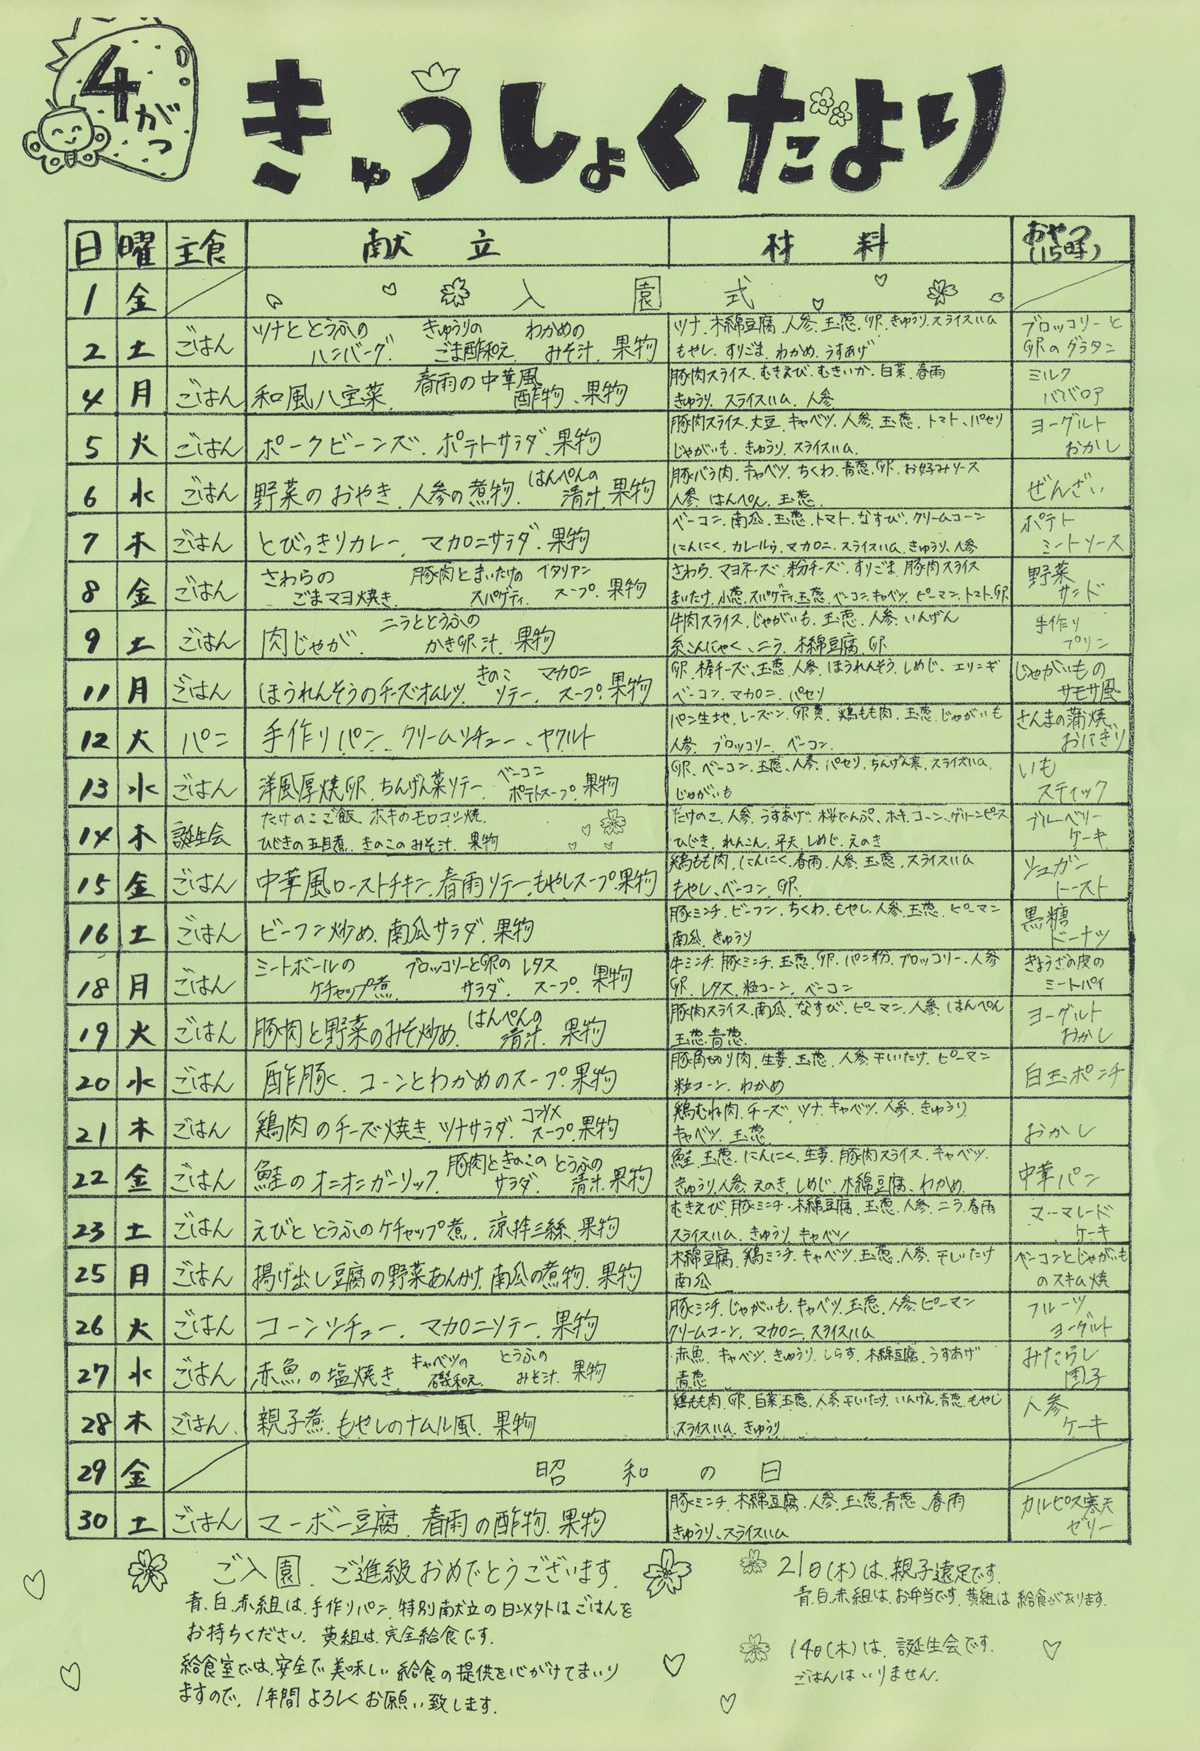 4がつ
きゅうしょくだより
日 曜 主食 献立 材料 おやつ(15時)
1 金 入園式
2 土 ごはん ツナととうふのハンバーグ. きゅうりのごま酢和え わかめのみそ汁. 果物 ツナ.木綿豆腐.人参.玉葱.卵.きゅうり.スライスハム
もやし.すりごま.わかめ.うすあげ ブロッコリーと卵のグラタン
4 月 ごはん 和風八宝菜. 春雨の中華風酢物.果物 豚肉スライス.むきえび.むきいか.白菜.春雨
きゅうり.スライスハム.人参 ミルクババロア
5 火 ごはん ポークビーンズ.ポテトサラダ.果物 豚肉スライス.大豆.キャベツ.人参.玉葱.トマト.パセリ
じゃがいも.きゅうり.スライスハム. ヨーグルトおかし
6 水 ごはん 野菜のおやき.人参の煮物.はんぺんの清汁.果物 豚バラ肉.キャベツ.ちくわ.青葱.卵.お好みソース
人参.はんぺん.玉葱. ぜんざい
7 木 ごはん とびっきりカレー.マカロニサラダ.果物 ベーコン.南瓜.玉葱.トマト.なすび.クリームコーン
にんにく.カレールゥ.マカロニ.スライスハム.きゅうり.人参 ポテトミートソース
8 金 ごはん さわらのごまマヨ焼き. 豚肉とまいたけのスパゲティ. イタリアンスープ.果物 さわら.マヨネーズ.粉チーズ.すりごま.豚肉スライス
まいたけ.小葱.スパゲティ.玉葱.ベーコン.キャベツ.ピーマン.トマト.卵 野菜サンド
9 土 ごはん 肉じゃが. ニラととうふのかき卵汁.果物 牛肉スライス.じゃがいも.玉葱.人参.いんげん
糸こんにゃく.ニラ.木綿豆腐.卵 手作りプリン
11 月 ごはん ほうれんそうのチーズオムレツ. きのこソテー. マカロニスープ.果物 卵.棒チーズ.玉葱.人参.ほうれんそう.しめじ.エリンギ
ベーコン.マカロニ.パセリ じゃがいものサモサ風
12 火 パン 手作りパン.クリームシチュー.ヤクルト パン生地.レーズン.卵黄.鶏もも肉.玉葱.じゃがいも
人参.ブロッコリー.ベーコン. さんまの蒲焼おにぎり
13 水 ごはん 洋風厚焼卵.ちんげん菜ソテー.ベーコンポテトスープ.果物 卵.ベーコン.玉葱.人参.パセリ.ちんげん菜.スライスハム.
じゃがいも いもスティック
14 木 誕生会 たけのこご飯.ホキのモロコシ焼.
ひじきの五目煮.きのこのみそ汁.果物 たけのこ.人参.うすあげ.桜でんぷ.ホキ.コーン.グリーンピース
ひじき.れんこん.平天.しめじ.えのき ブルーベリーケーキ
15 金 ごはん 中華風ローストチキン.春雨ソテー.もやしスープ.果物 鶏もも肉.にんにく.春雨.人参.玉葱.スライスハム
もやし.ベーコン.卵. シュガートースト
16 土 ごはん ビーフン炒め.南瓜サラダ.果物 豚ミンチ.ビーフン.ちくわ.もやし.人参.玉葱.ピーマン
南瓜.きゅうり 黒糖ドーナツ
18 月 ごはん ミートボールのケチャップ煮. ブロッコリーと卵のサラダ. レタススープ.果物 牛ミンチ.豚ミンチ.玉葱.卵.パン粉.ブロッコリー.人参
卵.レタス.粒コーン.ベーコン ぎょうざの皮のミートパイ
19 火 ごはん 豚肉と野菜のみそ炒め.はんぺんの清汁.果物 豚肉スライス.南瓜.なすび.ピーマン.人参.はんぺん
玉葱.青葱. ヨーグルトおかし
20 水 ごはん 酢豚.コーンとわかめのスープ.果物 豚角切り肉.生姜.玉葱.人参.干しいたけ.ピーマン
粒コーン.わかめ 白玉ポンチ
21 木 ごはん 鶏肉のチーズ焼き.ツナサラダ.コンソメスープ.果物 鶏むね肉.チーズ.ツナ.キャベツ.人参.きゅうり
キャベツ.玉葱. おかし
22 金 ごはん 鮭のオニオンガーリック.豚肉ときのこのサラダ.とうふの清汁.果物 鮭.玉葱.にんにく.生姜.豚肉スライス.キャベツ.
きゅうり.人参.えのき.しめじ.木綿豆腐.わかめ. 中華パン
23 土 ごはん えびととうふのケチャップ煮.涼拌三絲.果物 むきえび.豚ミンチ.木綿豆腐.玉葱.人参.ニラ.春雨
スライスハム.きゅうり.キャベツ マーマレードケーキ
25 月 ごはん 揚げ出し豆腐の野菜あんかけ.南瓜の煮物.果物 木綿豆腐.鶏ミンチ.キャベツ.玉葱.人参.干しいたけ
南瓜 ベーコンとじゃがいものスキム焼
26 火 ごはん コーンシチュー.マカロニソテー.果物 豚ミンチ.じゃがいも.キャベツ.玉葱.人参.ピーマン
クリームコーン.マカロニ.スライスハム フルーツヨーグルト
27 水 ごはん 赤魚の塩焼き.キャベツの磯和え.とうふのみそ汁.果物 赤魚.キャベツ.きゅうり.しらす.木綿豆腐.うすあげ
青葱 みたらし団子
28 木 ごはん 親子煮.もやしのナムル風.果物 鶏もも肉.卵.白菜.玉葱.人参.干しいたけ.いんげん.青葱.もやし
スライスハム.きゅうり 人参ケーキ
29 金 昭和の日
30 土 ごはん マーボー豆腐.春雨の酢物.果物 豚ミンチ.木綿豆腐.人参.玉葱.青葱.春雨
きゅうり.スライスハム カルピス寒天ゼリー
ご入園.ご進級おめでとうございます.
青.白.赤組は.手作りパン.特別献立の日以外はごはんを
お持ちください.黄組は.完全給食です.
給食室では.安全で美味しい給食の提供を心がけてまいり
ますので.1年間よろしくお願い致します.
21日(木)は.親子遠足です.
青.白.赤組は.お弁当です.黄組は給食があります.
14日(木)は.誕生会です.
ごはんはいりません.